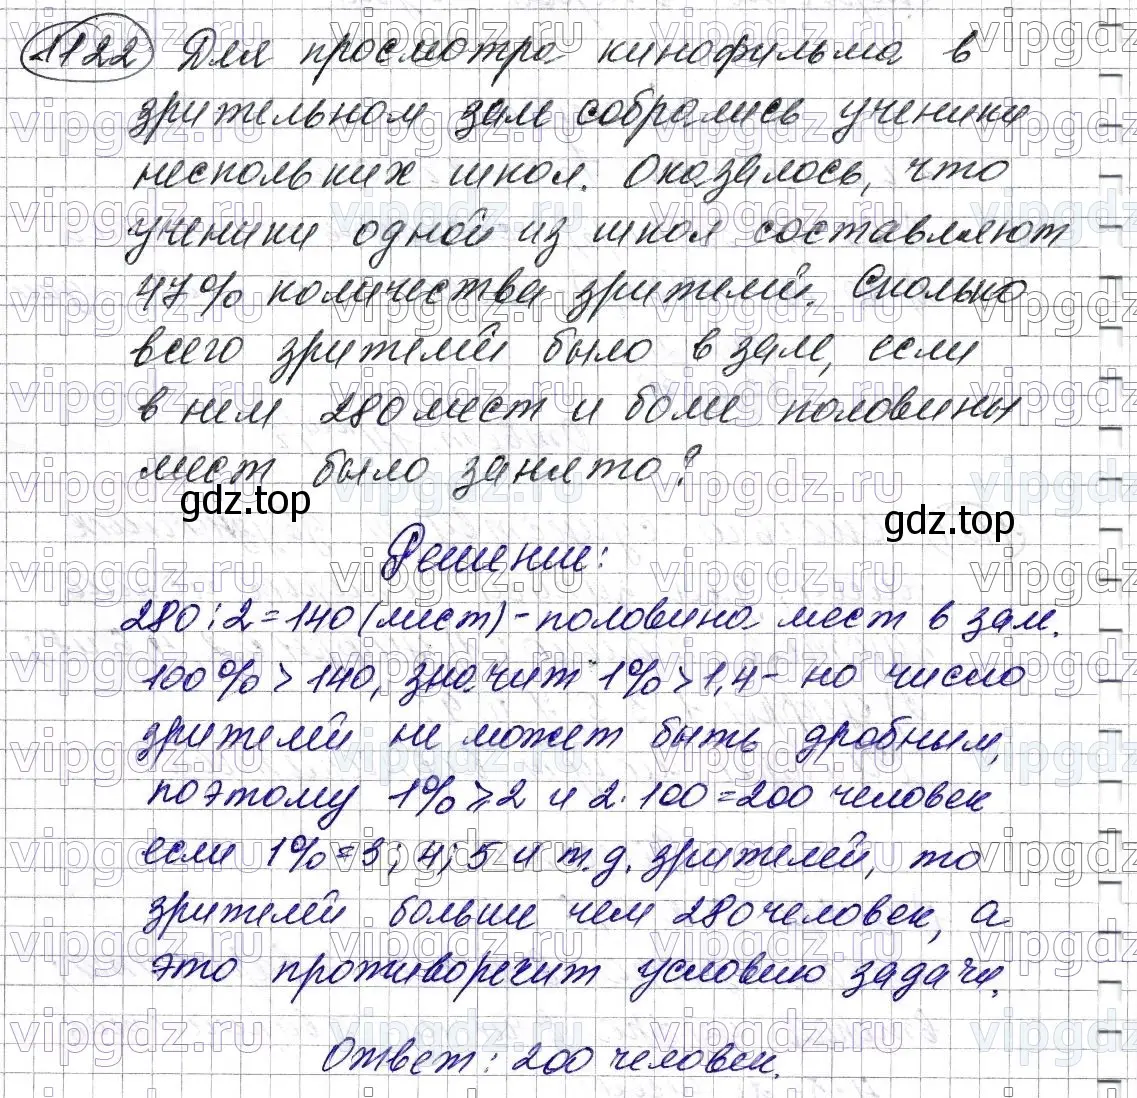 1122 Для просмотра кинофильма в
зрительном зале собрались ученики
нескольких школ. Оказалось, что
ученики одной из школ составляют
47% количества зрителей. Сколько
всего зрителей было в зале, если
в нем 280 мест и более половины
мест было занято?
gdz.top
gdz.top
Решение:
280:2=140 (мест) - половина мест в зале.
100% > 140, значит 1% > 1,4 - но число
зрителей не может быть дробным,
поэтому 1% ⩾ 2 и 2·100=200 человек
если 1% = 3; 4; 5 и т.д. зрителей, то
зрителей больше чем 280 человек, а
это противоречит условию задачи.
Ответ: 200 человек.
vipgdz.ru